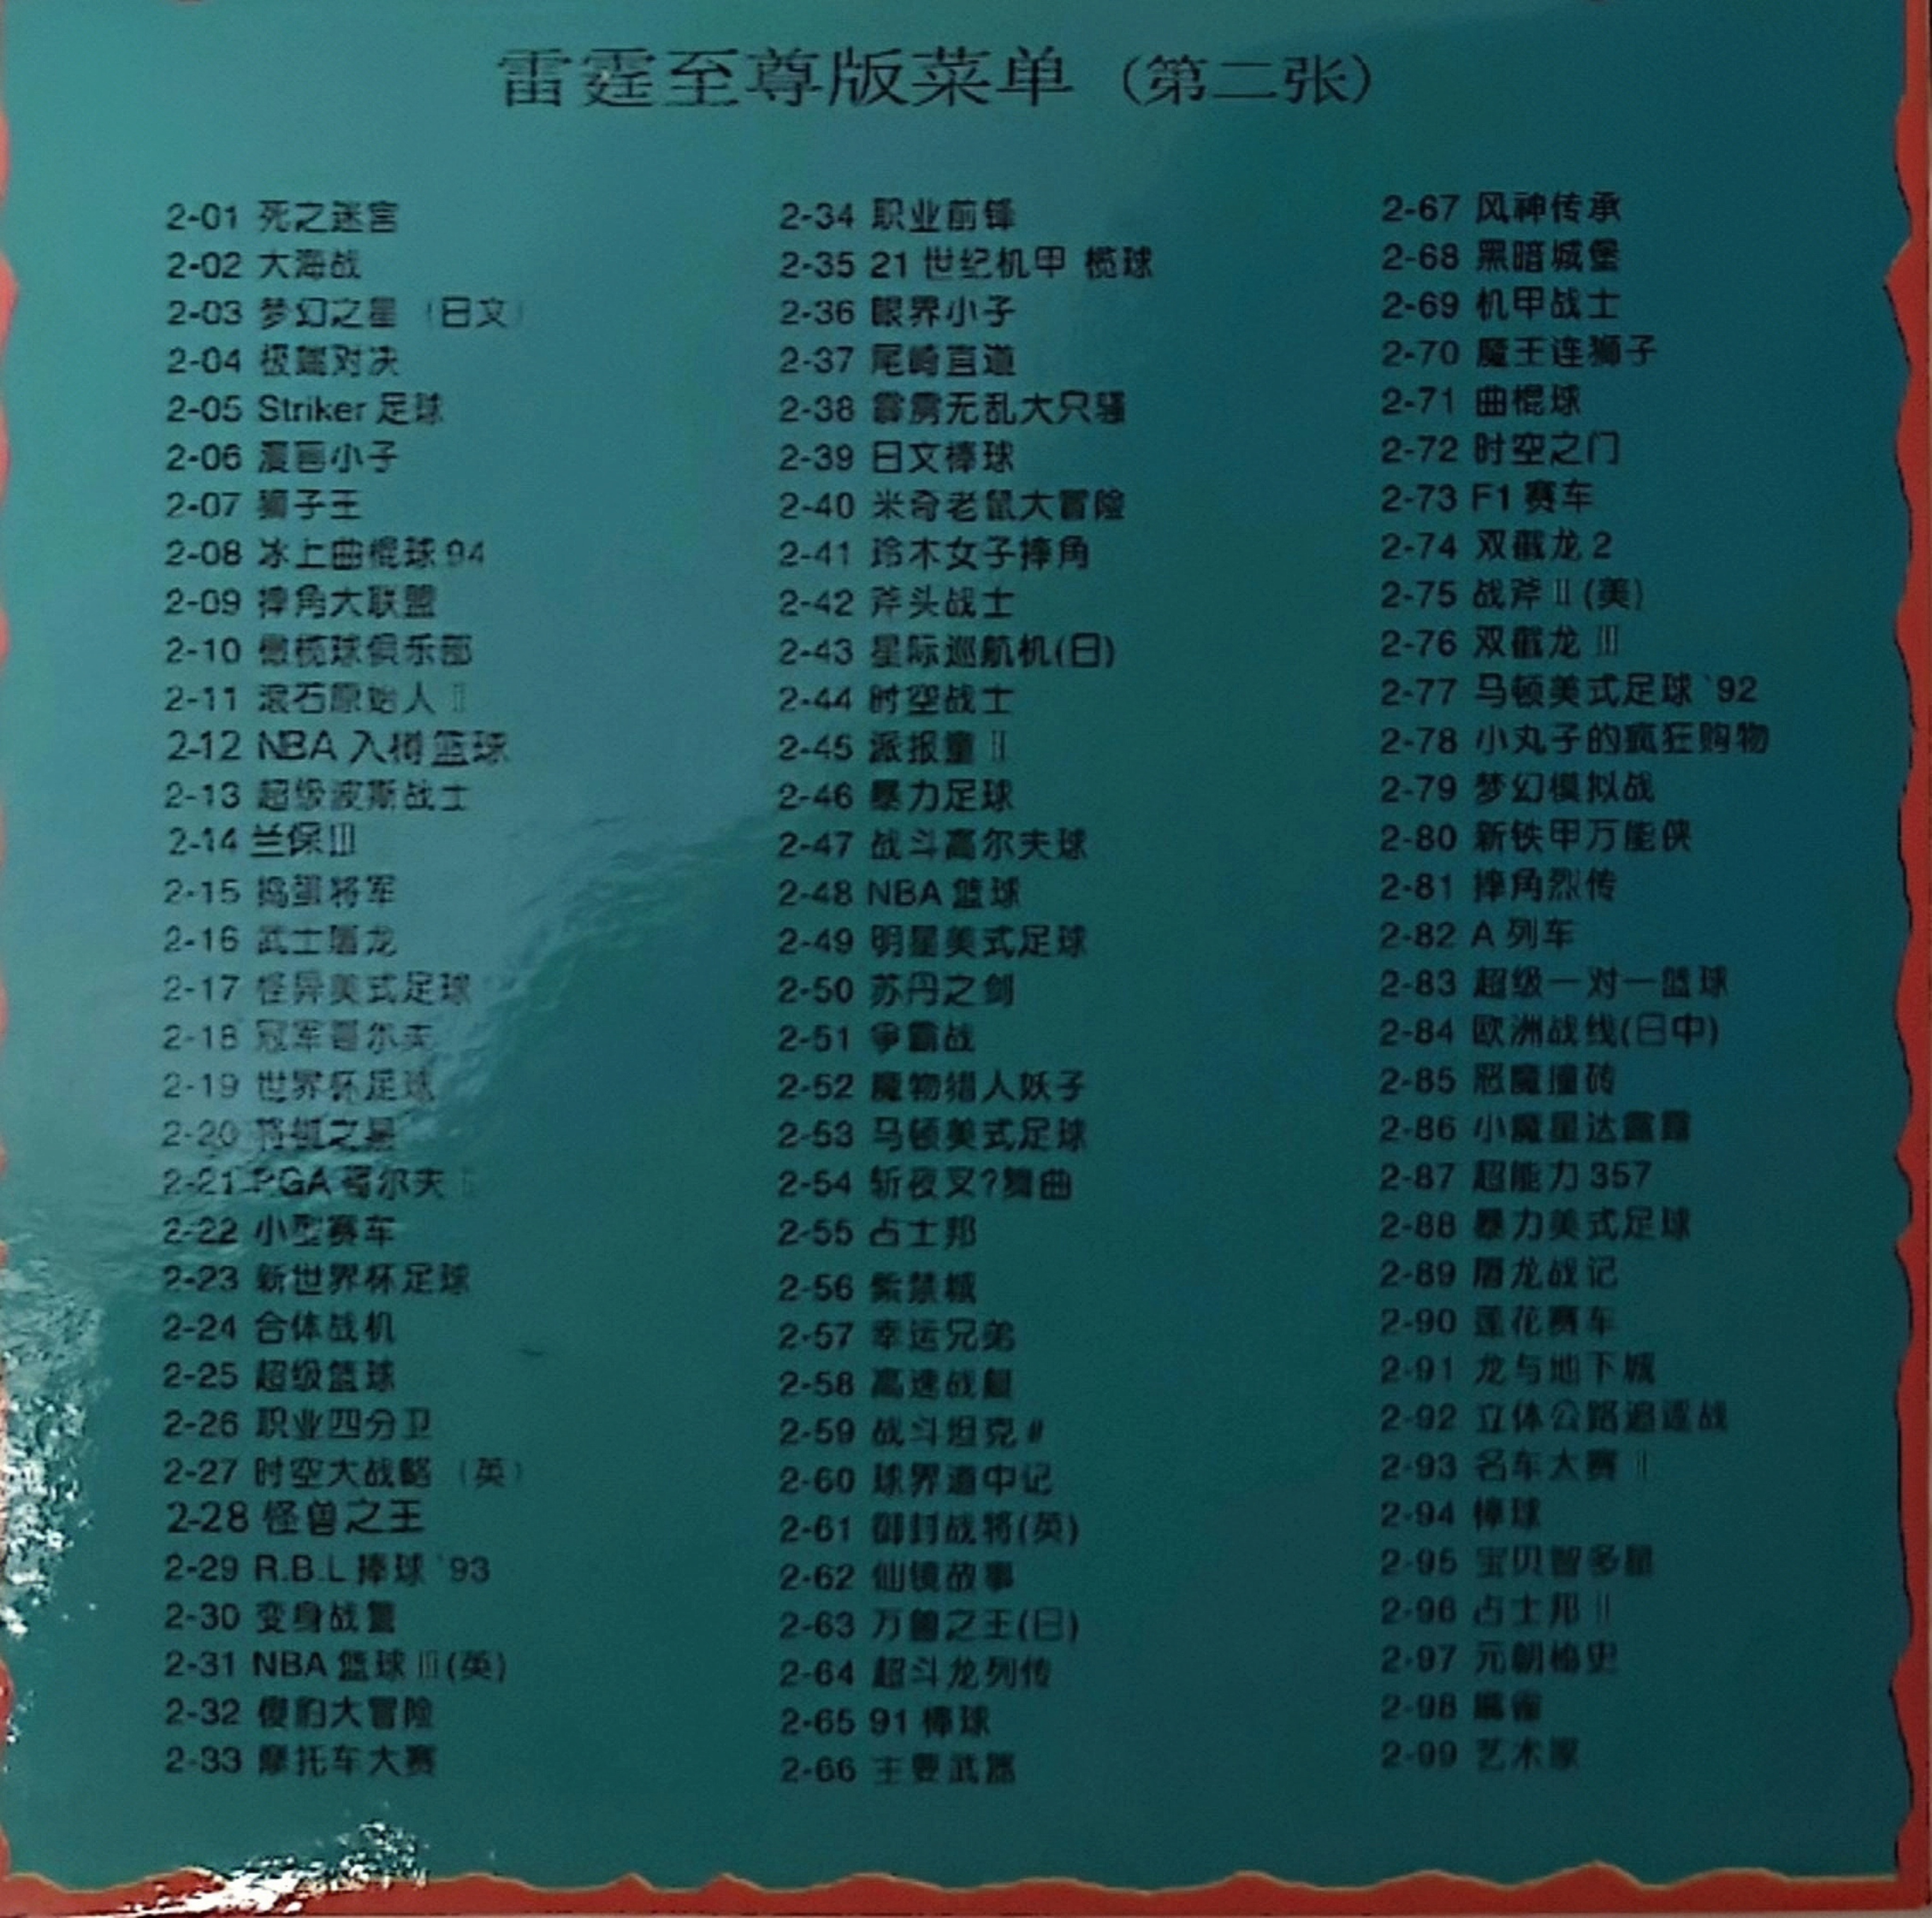 雷霆至尊版菜单（第二张）
2-01 死之迷宫
2-02 大海战
2-03 梦幻之星（日文）
2-04 极端对决
2-05 Striker 足球
2-06 漫画小子
2-07 狮子王
2-08 冰上曲棍球 94
2-09 摔角大联盟
2-10 橄榄球俱乐部
2-11 滚石原始人 II
2-12 NBA 入樽篮球
2-13 超级波斯战士
2-14 兰保 III
2-15 捣蛋将军
2-16 武士屠龙
2-17 怪异美式足球
2-18 冠军哥尔夫
2-19 世界杯足球
2-20 之星
2-21 PGA 哥尔夫
2-22 小型赛车
2-23 新世界杯足球
2-24 合体战机
2-25 超级篮球
2-26 职业四分卫
2-27 时空大战略（英）
2-28 怪兽之王
2-29 R.B.L 捧球 '93
2-30 变身战
2-31 NBA 篮球 III (英)
2-32 傻豹大冒险
2-33 摩托车大赛
2-34 职业前锋
2-35 21 世纪机甲 榄球
2-36 眼界小子
2-37 尾崎直道
2-38 霹雳无乱大只骚
2-39 日文棒球
2-40 米奇老鼠大冒险
2-41 玲木女子摔角
2-42 斧头战士
2-43 星际巡航机(日)
2-44 时空战士
2-45 派报童 II
2-46 暴力足球
2-47 战斗高尔夫球
2-48 NBA 篮球
2-49 明星美式足球
2-50 苏丹之剑
2-51 争霸战
2-52 魔物猎人妖子
2-53 马顿美式足球
2-54 斩夜叉?舞曲
2-55 占士邦
2-56 紫禁城
2-57 幸运兄弟
2-58 高速战艇
2-59 战斗坦克 II
2-60 球界道中记
2-61 御封战将(英)
2-62 仙镜故事
2-63 万兽之王(日)
2-64 超斗龙列传
2-65 91 棒球
2-66 主要武器
2-67 风神传承
2-68 黑暗城堡
2-69 机甲战士
2-70 魔王连狮子
2-71 曲棍球
2-72 时空之门
2-73 F1 赛车
2-74 双截龙 2
2-75 战斧 II (美)
2-76 双截龙 III
2-77 马顿美式足球 '92
2-78 小丸子的疯狂购物
2-79 梦幻模拟战
2-80 新铁甲万能侠
2-81 摔角烈传
2-82 A 列车
2-83 超级一对一篮球
2-84 欧洲战线(日中)
2-85 恶魔撞砖
2-86 小魔星达露露
2-87 超能力 357
2-88 暴力美式足球
2-89 屠龙战记
2-90 莲花赛车
2-91 龙与地下城
2-92 立体公路追逐战
2-93 名车大赛 II
2-94 棒球
2-95 宝贝智多星
2-96 占士邦 II
2-97 元朝秘史
2-98 麻雀
2-99 艺术家